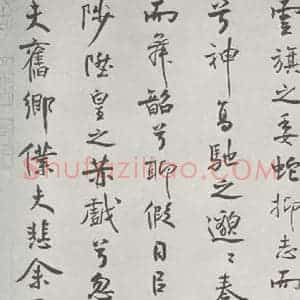 雲旗之委蛇抑志而
兮神高馳之邈〻奏
而舞韶兮聊假日㠯
陟陞皇之赫戲兮忽
夫舊鄉僕夫悲余